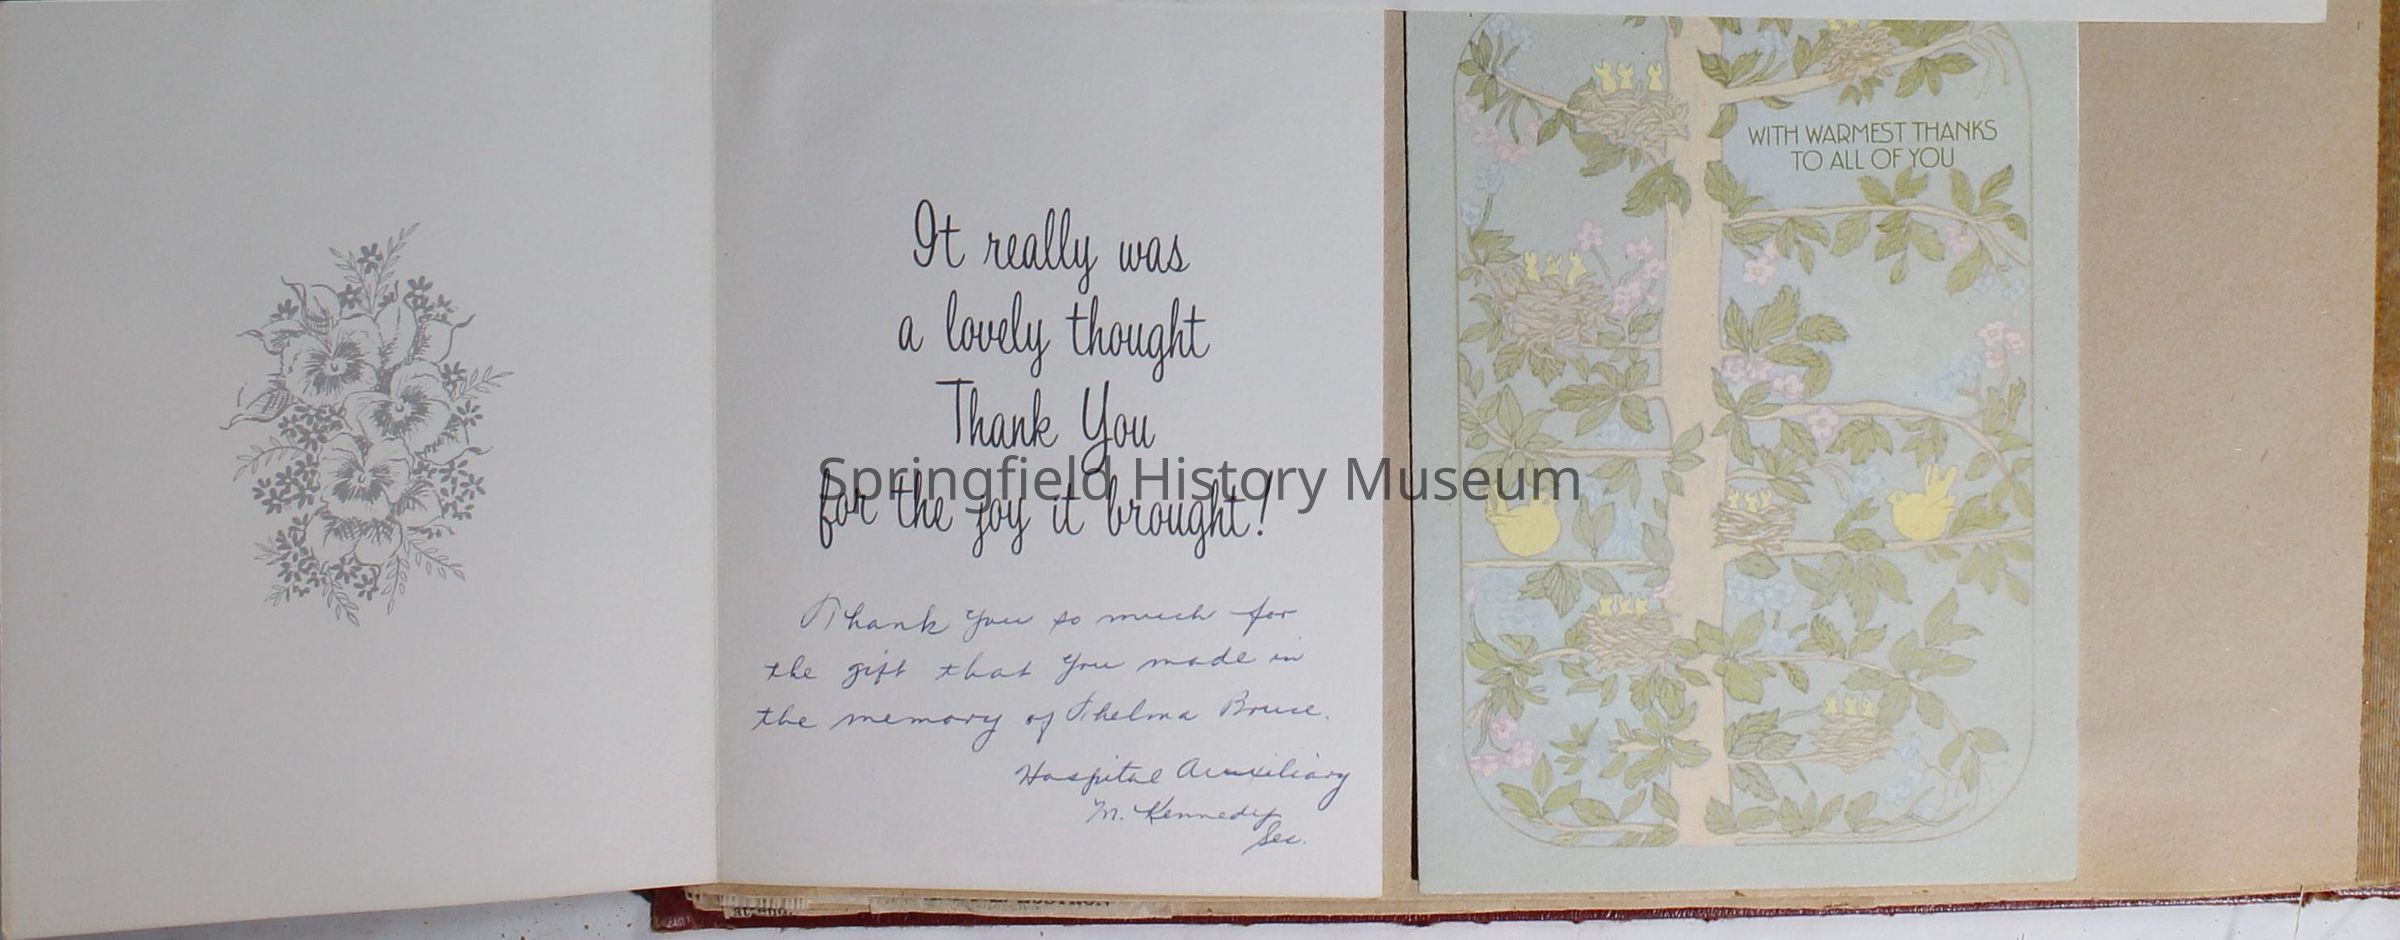 It really was
a lovely thought
Thank You
for the joy it brought!
Thank you so much for
the gift that you made in
the memory of Thelma Bruce.
Hospital Auxiliary
M. Kennedy
Sec.
WITH WARMEST THANKS
TO ALL OF YOU
Springfield History Museum